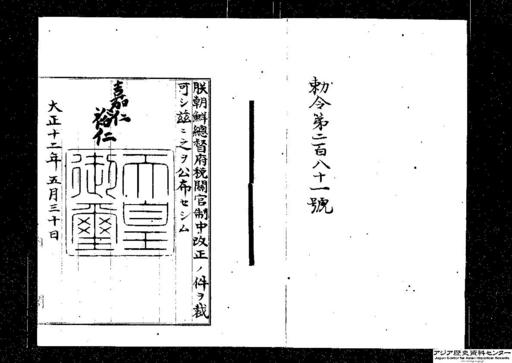 勅令第二百八十一號
朕朝鮮總督府税關官制中改正ノ件ヲ裁
可シ茲ニ之ヲ公布セシム
嘉仁
裕仁
天皇
御璽
大正十二年五月三十日
アジア歴史資料センター
Japan Center for Asian Historical Records